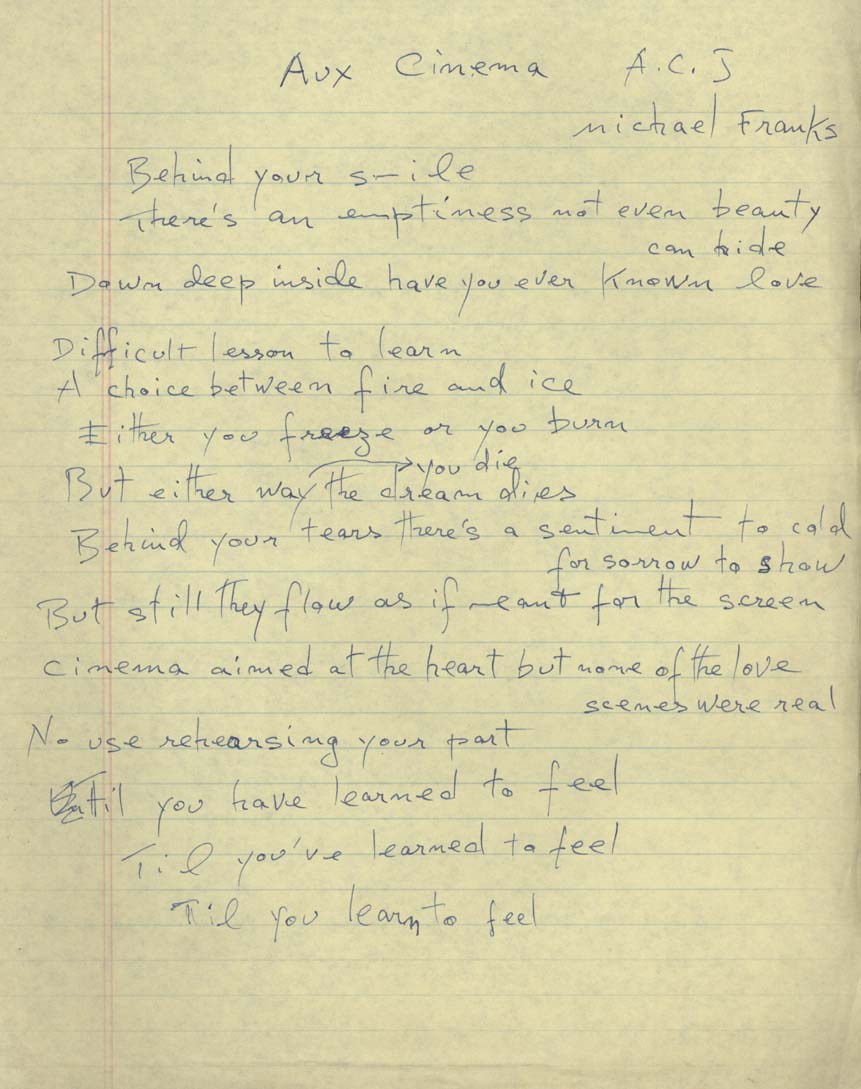 Aux Cinema A.C.J
michael Franks
Behind your smile
There's an emptiness not even beauty
can hide
Down deep inside have you ever Known love
Difficult lesson to learn
A choice between fire and ice
Either you freeze or you burn
you die
But either way the dream dies
Behind your tears there's a sentiment to cold
for sorrow to show
But still they flow as if meant for the screen
cinema aimed at the heart but none of the love
scenes were real
No use rehearsing your part
Until you have learned to feel
Til you've learned to feel
Til you learn to feel